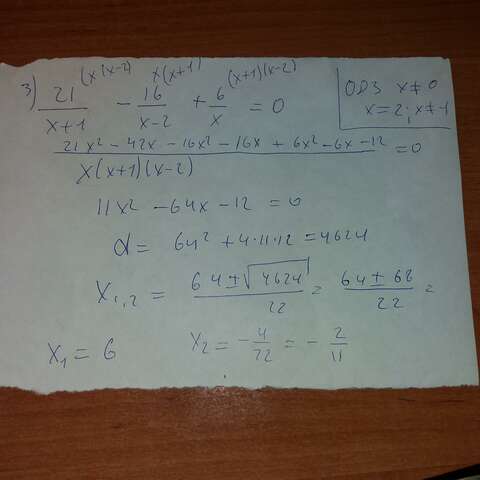 3) 21/(x+1) (x(x-2) - 16/(x-2) x(x+1) + 6/x (x+1)(x-2) = 0
ОДЗ x≠0
x=2; x≠-1
(21x² - 42x - 16x² - 16x + 6x² - 6x - 12)/(x(x+1)(x-2)) = 0
11x² - 64x - 12 = 0
d = 64² + 4·11·12 = 4624
x₁,₂ = (64 ± √4624)/22 = (64 ± 68)/22 =
x₁ = 6 x₂ = -4/22 = -2/11